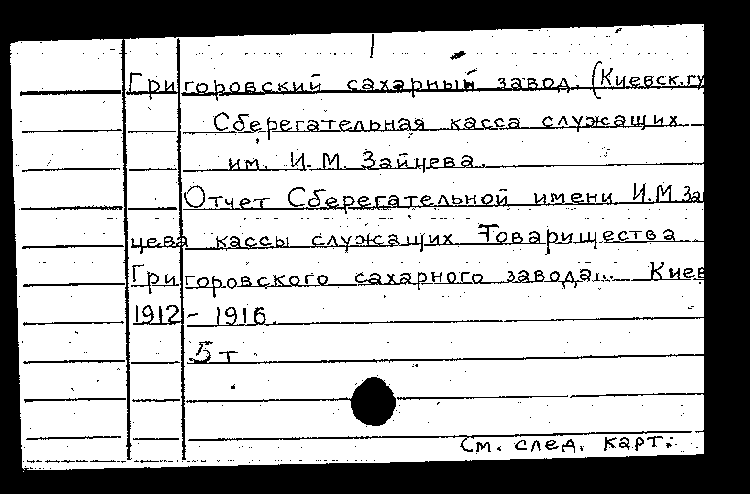 Григоровский сахарный завод. (Киевск.гу
Сберегательная касса служащих
им. И.М. Зайцева.
Отчет Сберегательной имени И.М Зай
цева кассы служащих Товарищества
Григоровского сахарного завода... Киев
1912 - 1916.
5 т
См. след. карт.